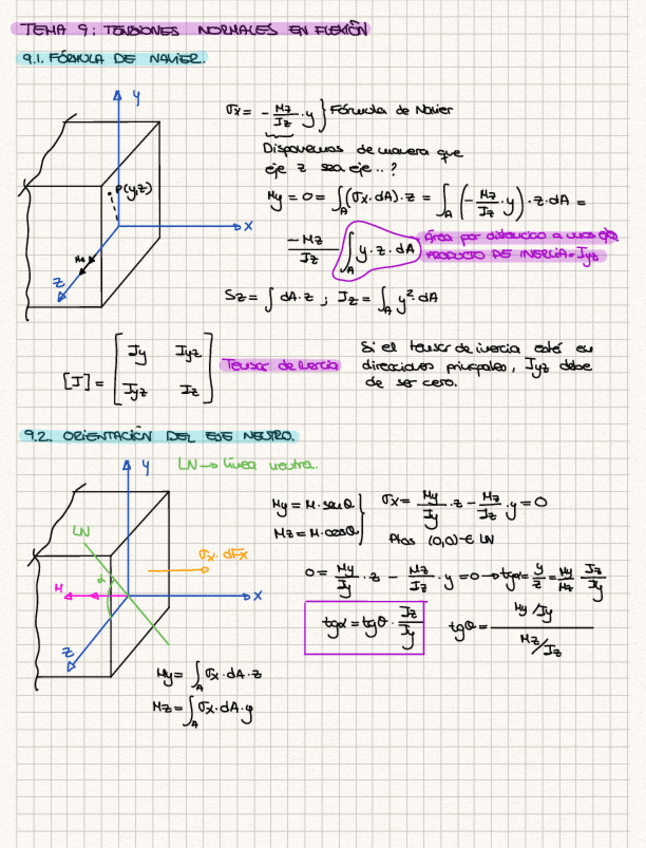 TEMA 9: TENSIONES NORMALES EN FLEXIÓN
9.1. FÓRMULA DE NAVIER.
Y
σx = -Mz/Iz · y } Fórmula de Navier
Disponemos de manera que
eje z sea eje..?
P(y,z)
X
Mz
Z
My = 0 = ∫A (σx·dA)·z = ∫A (-Mz/Iz · y)·z·dA =
-Mz/Iz ∫A y·z·dA
Área por distancia a unos eje
PRODUCTO DE INERCIA = Iyz
Sz = ∫ dA·z ; Iz = ∫A y²·dA
[I] = [ Iy Iyz
Iyz Iz ]
Tensor de inercia
Si el tensor de inercia está en
direcciones principales, Iyz debe
de ser cero.
9.2. ORIENTACIÓN DEL EJE NEUTRO.
Y
LN → línea neutra.
LN
α
M
X
Z
My = M·senθ
Mz = M·cosθ
σx = My/Iy · z - Mz/Iz · y = 0
Ptos (0,0) ∈ LN
0 = My/Iy · z - Mz/Iz · y = 0 → tgα = y/z = My/Mz · Iz/Iy
tgα = tgθ · Iz/Iy
tgθ = My/Iy / Mz/Iz
My = ∫A σx·dA·z
Mz = ∫A σx·dA·y